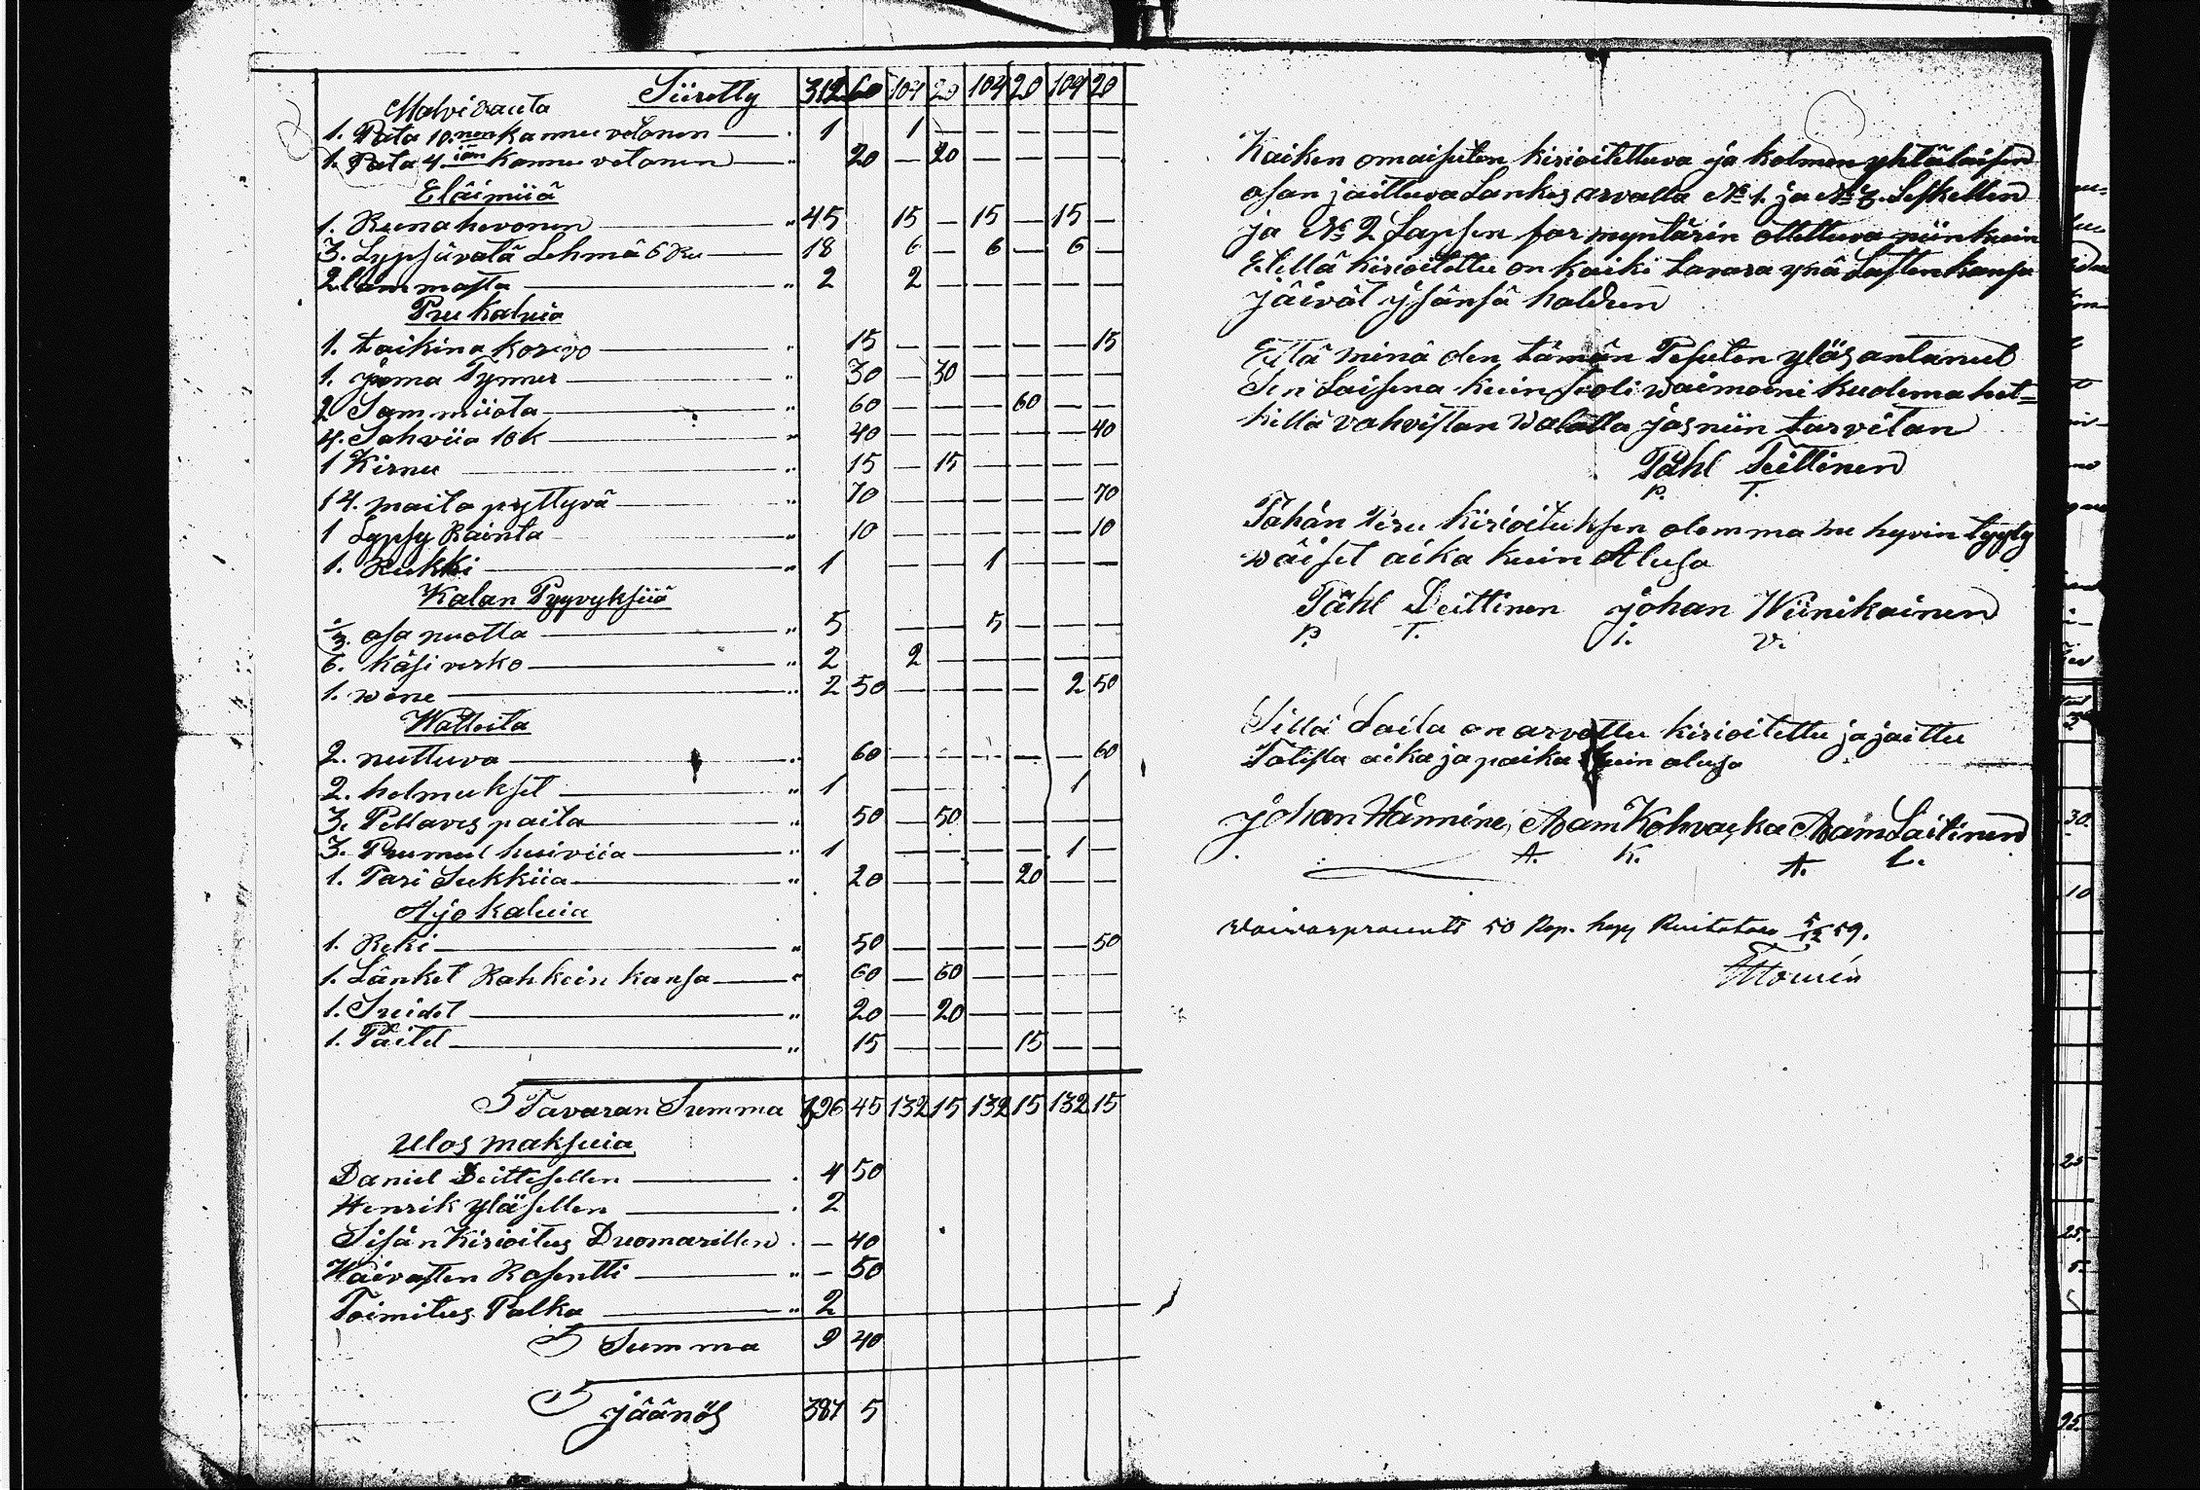 Siiretty 312 60 104 20 104 20 104 20
Malvirauta
1. Pata 10.nen kannu vetonen 1 1 — — — — —
1. Pata 4.iän kannu vetonen 20 — 20 — — — —
Eläimiiä
1. Ruuna hevonen 45 15 — 15 — 15 —
3. Lypsüvätä Lehmä 6 Ru 18 6 — 6 — 6 —
2 lammasta 2 2 — — — — —
Puu Kaluia
1. taikina korvo 15 — — — — — 15
1. juoma Tynner 30 — 30 — — — —
2 Sammiiota 60 — — — 60 — —
4. Sahviia 10 k 40 — — — — — 40
1 Kirnu 15 — 15 — — — —
14. maito pyttyvä 70 — — — — — 70
1 Lypsy Rainta 10 — — — — — 10
1. Rukki 1 — — 1 — — —
Kalan Pyyvyksiiä
1/3. osa nuotta 5 — — 5 — — —
6. käsi verko 2 2 — — — — —
1. wene 2 50 — — — — 2 50
Watteita
2. nuttuva 60 — — — — — 60
2. helmukset 1 — — — — 1
3. Pellaves paita 50 — 50 — — — —
3. Puumul huiviia 1 — — — — 1 —
1. Pari Sukkiia 20 — — — 20 — —
Ajo kaluia
1. Reki 50 — — — — — 50
1. Länket Rahkein kansa 60 — 60 — — — —
1. Suidet 20 — 20 — — — —
1. Päitet 15 — — — 15 — —
Tavaran Summa 396 45 132 15 132 15 132 15
Ulos maksuia
Daniel Deittisellen 4 50
Henrik yläsellen 2
Sisän Kirioitus Duomarillen — 40
Waivasten Rosentti — 50
Toimitus Palka 2
Summa 9 40
jäänös 387 5
Kaiken omaisuten kirioitettuva ja kolmen yhtälaisen
osan jaittuva Lankes arvalla No 1. ja No 3. Leskellen
ja No 2 Lapsen formyntärin otettuva niinkuin
Etellä kirioitettu on kaiki tavara ynä Lasten kansa
jäivät ysänsä haldun
Että minä olen tämän Pesuten ylös antanut
Sen Laisena kuin se oli waimoini kuolema het=
killä vahvistan walalla jos niin tarvitan
Påhl Teittinen
P. T.
Tähän Peru kirioituksen olemma me hyvin tyyty
wäiset aika kuin Alusa
Påhl Deittinen johan Wiinikainen
P. T. i. v.
Sillä Laila on arvattu kirioitettu ja jaittu
Totista aika ja paika kuin alusa
johan Hännine, Aam Kohvaska Aam Laitinen
A. K. A. L.
Waivasprocenti 50 Kop. 5/12 59.